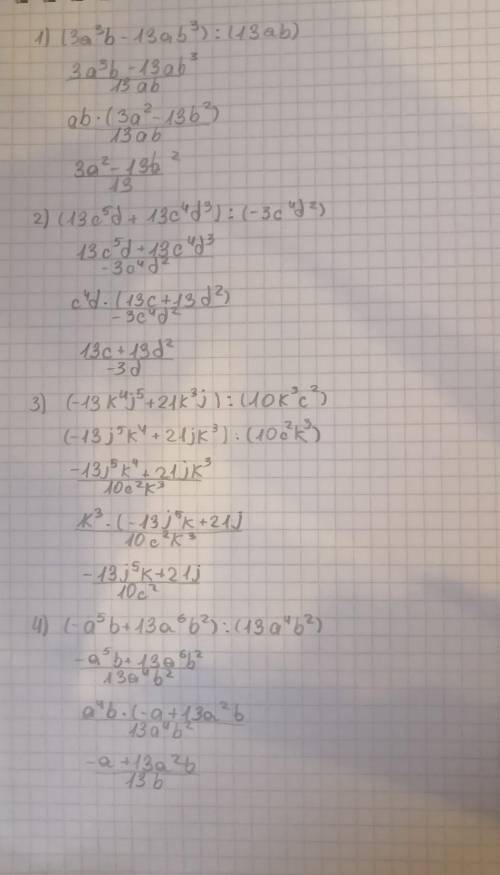 1) (3a³b - 13ab³) : (13ab)
3a³b - 13ab³
13ab
ab · (3a² - 13b²)
13ab
3a² - 13b²
13
2) (13c⁵d + 13c⁴d³) : (-3c⁴d²)
13c⁵d + 13c⁴d³
-3c⁴d²
c⁴d · (13c + 13d²)
-3c⁴d²
13c + 13d²
-3d
3) (-13k⁴j⁵ + 21k³j) : (10k³c²)
(-13j⁵k⁴ + 21jk³) : (10c²k³)
-13j⁵k⁴ + 21jk³
10c²k³
k³ · (-13j⁵k + 21j
10c²k³
-13j⁵k + 21j
10c²
4) (-a⁵b + 13a⁶b²) : (13a⁴b²)
-a⁵b + 13a⁶b²
13a⁴b²
a⁴b · (-a + 13a²b
13a⁴b²
-a + 13a²b
13b